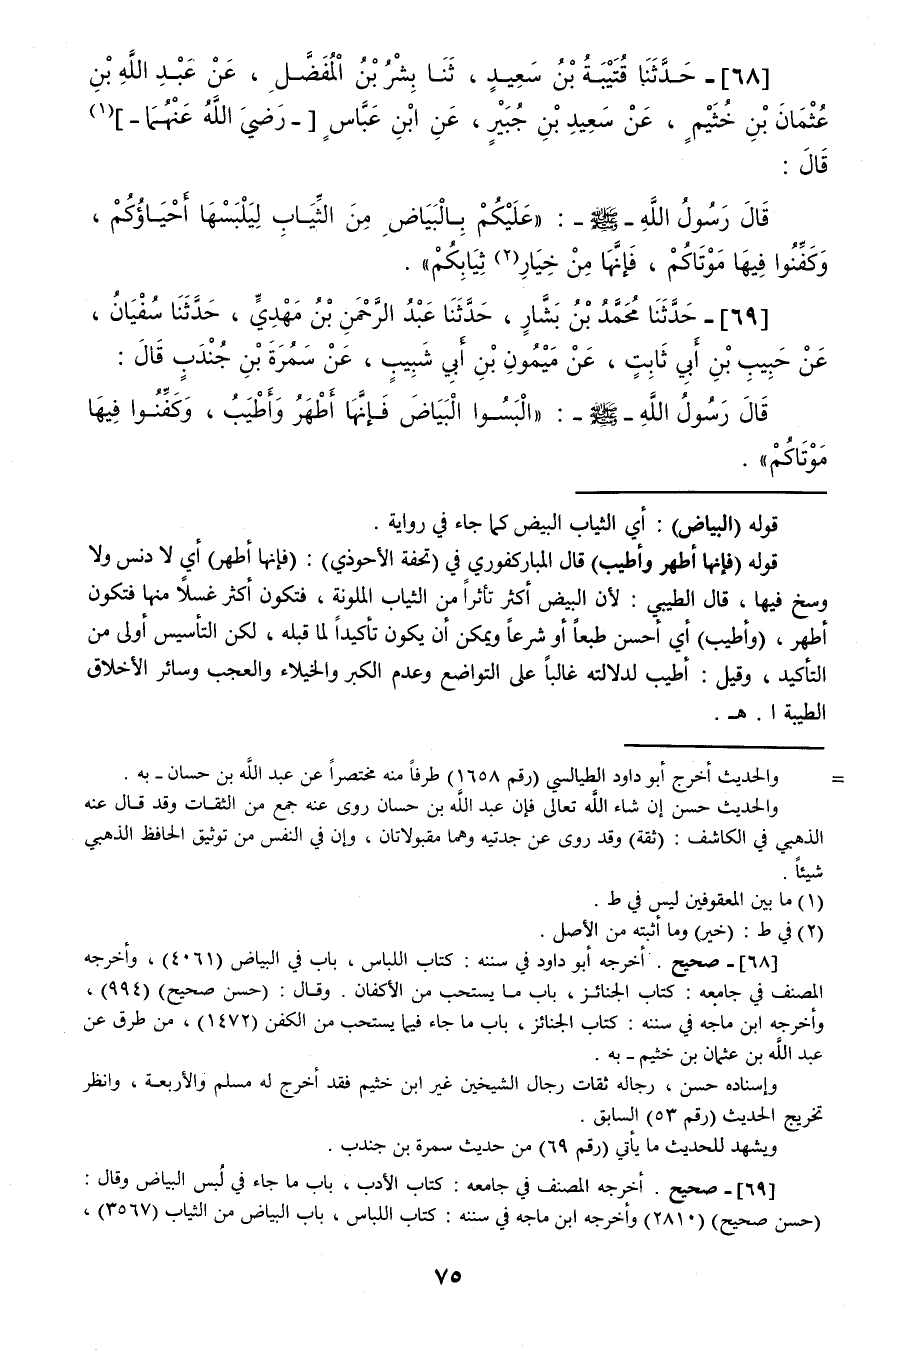 [٦٨] ـ حَـدَّثَنَا قُتَيْبَةُ بْنُ سَعِيدٍ ، ثَنَـا بِشْرُ بْنُ الْمُفَضَّـلِ ، عَنْ عَبْـدِ اللَّهِ بْنِ
عُثْمَانَ بْنِ خُثَيْمٍ ، عَنْ سَعِيدِ بْنِ جُبَيْرٍ ، عَنِ ابْنِ عَبَّاسٍ [ ـ رَضِيَ اللَّهُ عَنْهُمَا ـ ](١)
قَالَ :
قَالَ رَسُولُ اللَّهِ ـ ﷺ ـ : «عَلَيْكُمْ بِـالْبَيَاضِ مِنَ الثِّيَـابِ لِيَلْبَسْهَا أَحْيَـاؤُكُمْ ،
وَكَفِّنُوا فِيهَا مَوْتَاكُمْ ، فَإِنَّهَا مِنْ خِيَارِ(٢) ثِيَابِكُمْ» .
[٦٩] ـ حَدَّثَنَا مُحَمَّدُ بْنُ بَشَّارٍ ، حَدَّثَنَا عَبْدُ الرَّحْمَنِ بْنُ مَهْدِيٍّ ، حَدَّثَنَا سُفْيَانُ ،
عَنْ حَبِيبِ بْنِ أَبِي ثَابِتٍ ، عَنْ مَيْمُونِ بْنِ أَبِي شَبِيبٍ ، عَنْ سَمُرَةَ بْنِ جُنْدَبٍ قَالَ :
قَالَ رَسُولُ اللَّهِ ـ ﷺ ـ : «الْبَسُـوا الْبَيَاضَ فَـإِنَّهَا أَطْهَرُ وَأَطْيَبُ ، وَكَفِّنُـوا فِيهَا
مَوْتَاكُمْ» .
قوله (البياض) : أي الثياب البيض كما جاء في رواية .
قوله (فإنها أطهر وأطيب) قال المباركفوري في (تحفة الأحوذي) : (فإنها أطهر) أي لا دنس ولا
وسخ فيها ، قال الطيبي : لأن البيض أكثر تأثراً من الثياب الملونة ، فتكون أكثر غسلاً منها فتكون
أطهر ، (وأطيب) أي أحسن طبعاً أو شرعاً ويمكن أن يكون تأكيداً لما قبله ، لكن التأسيس أولى من
التأكيد ، وقيل : أطيب لدلالته غالباً على التواضع وعدم الكبر والخيلاء والعجب وسائر الأخلاق
الطيبة ا . هـ .
= والحديث أخرج أبو داود الطيالسي (رقم ١٦٥٨) طرفاً منه مختصراً عن عبد الله بن حسان ـ به .
والحديث حسن إن شاء الله تعالى فإن عبد الله بن حسان روى عنه جمع من الثقات وقد قـال عنه
الذهبي في الكاشف : (ثقة) وقد روى عن جدتيه وهما مقبولاتان ، وإن في النفس من توثيق الحافظ الذهبي
شيئاً .
(١) ما بين المعقوفين ليس في ط .
(٢) في ط : (خير) وما أثبته من الأصل .
[٦٨] ـ صحيح . أخرجه أبو داود في سننه : كتاب اللباس ، باب في البياض (٤٠٦١) ، وأخرجه
المصنف في جامعه : كتاب الجنائـز ، باب مـا يستحب من الأكفان . وقـال : (حسن صحيح) (٩٩٤) ،
وأخرجه ابن ماجه في سننه : كتاب الجنائز ، باب ما جاء فيما يستحب من الكفن (١٤٧٢) ، من طرق عن
عبد الله بن عثمان بن خثيم ـ به .
وإسناده حسن ، رجاله ثقات رجال الشيخين غير ابن خثيم فقد أخرج له مسلم والأربعـة ، وانظر
تخريج الحديث (رقم ٥٣) السابق .
ويشهد للحديث ما يأتي (رقم ٦٩) من حديث سمرة بن جندب .
[٦٩] ـ صحيح . أخرجه المصنف في جامعه : كتاب الأدب ، باب ما جاء في لُبس البياض وقال :
(حسن صحيح) (٢٨١٠) وأخرجه ابن ماجه في سننه : كتاب اللباس ، باب البياض من الثياب (٣٥٦٧) ،
٧٥